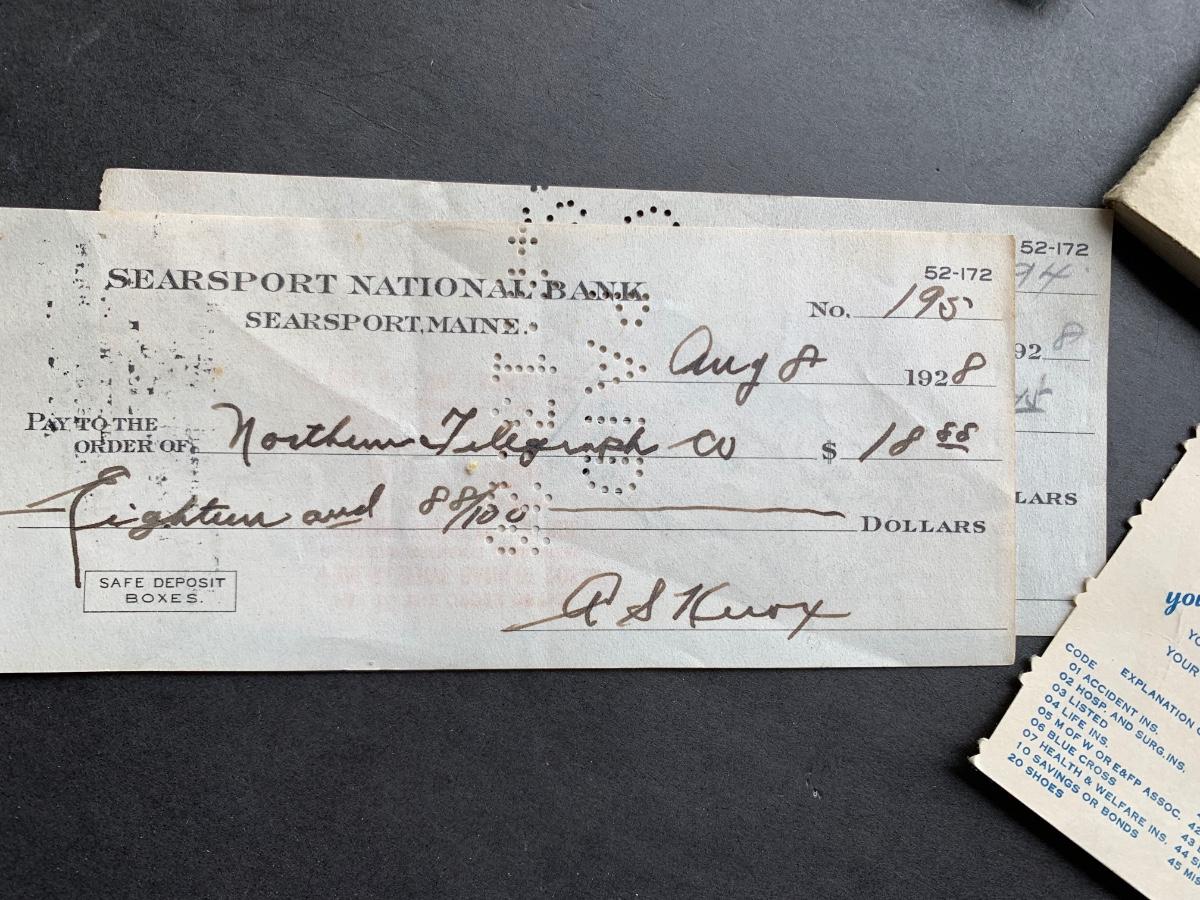 SEARSPORT NATIONAL BANK
SEARSPORT, MAINE.
52-172
No. 195
Aug 8 1928
PAY TO THE
ORDER OF Northern Telegraph Co $ 18 88
Eighteen and 88/100 DOLLARS
SAFE DEPOSIT
BOXES.
A S Knox
52-172
94
92 8
LARS
you
YO
YOUR
CODE EXPLANATION
01 ACCIDENT INS.
02 HOSP. AND SURG. INS.
03 LISTED
04 LIFE INS.
05 M OF W OR E&FP ASSOC.
06 BLUE CROSS
07 HEALTH & WELFARE INS.
10 SAVINGS OR BONDS
20 SHOES
42
43
44 S
45 MIS